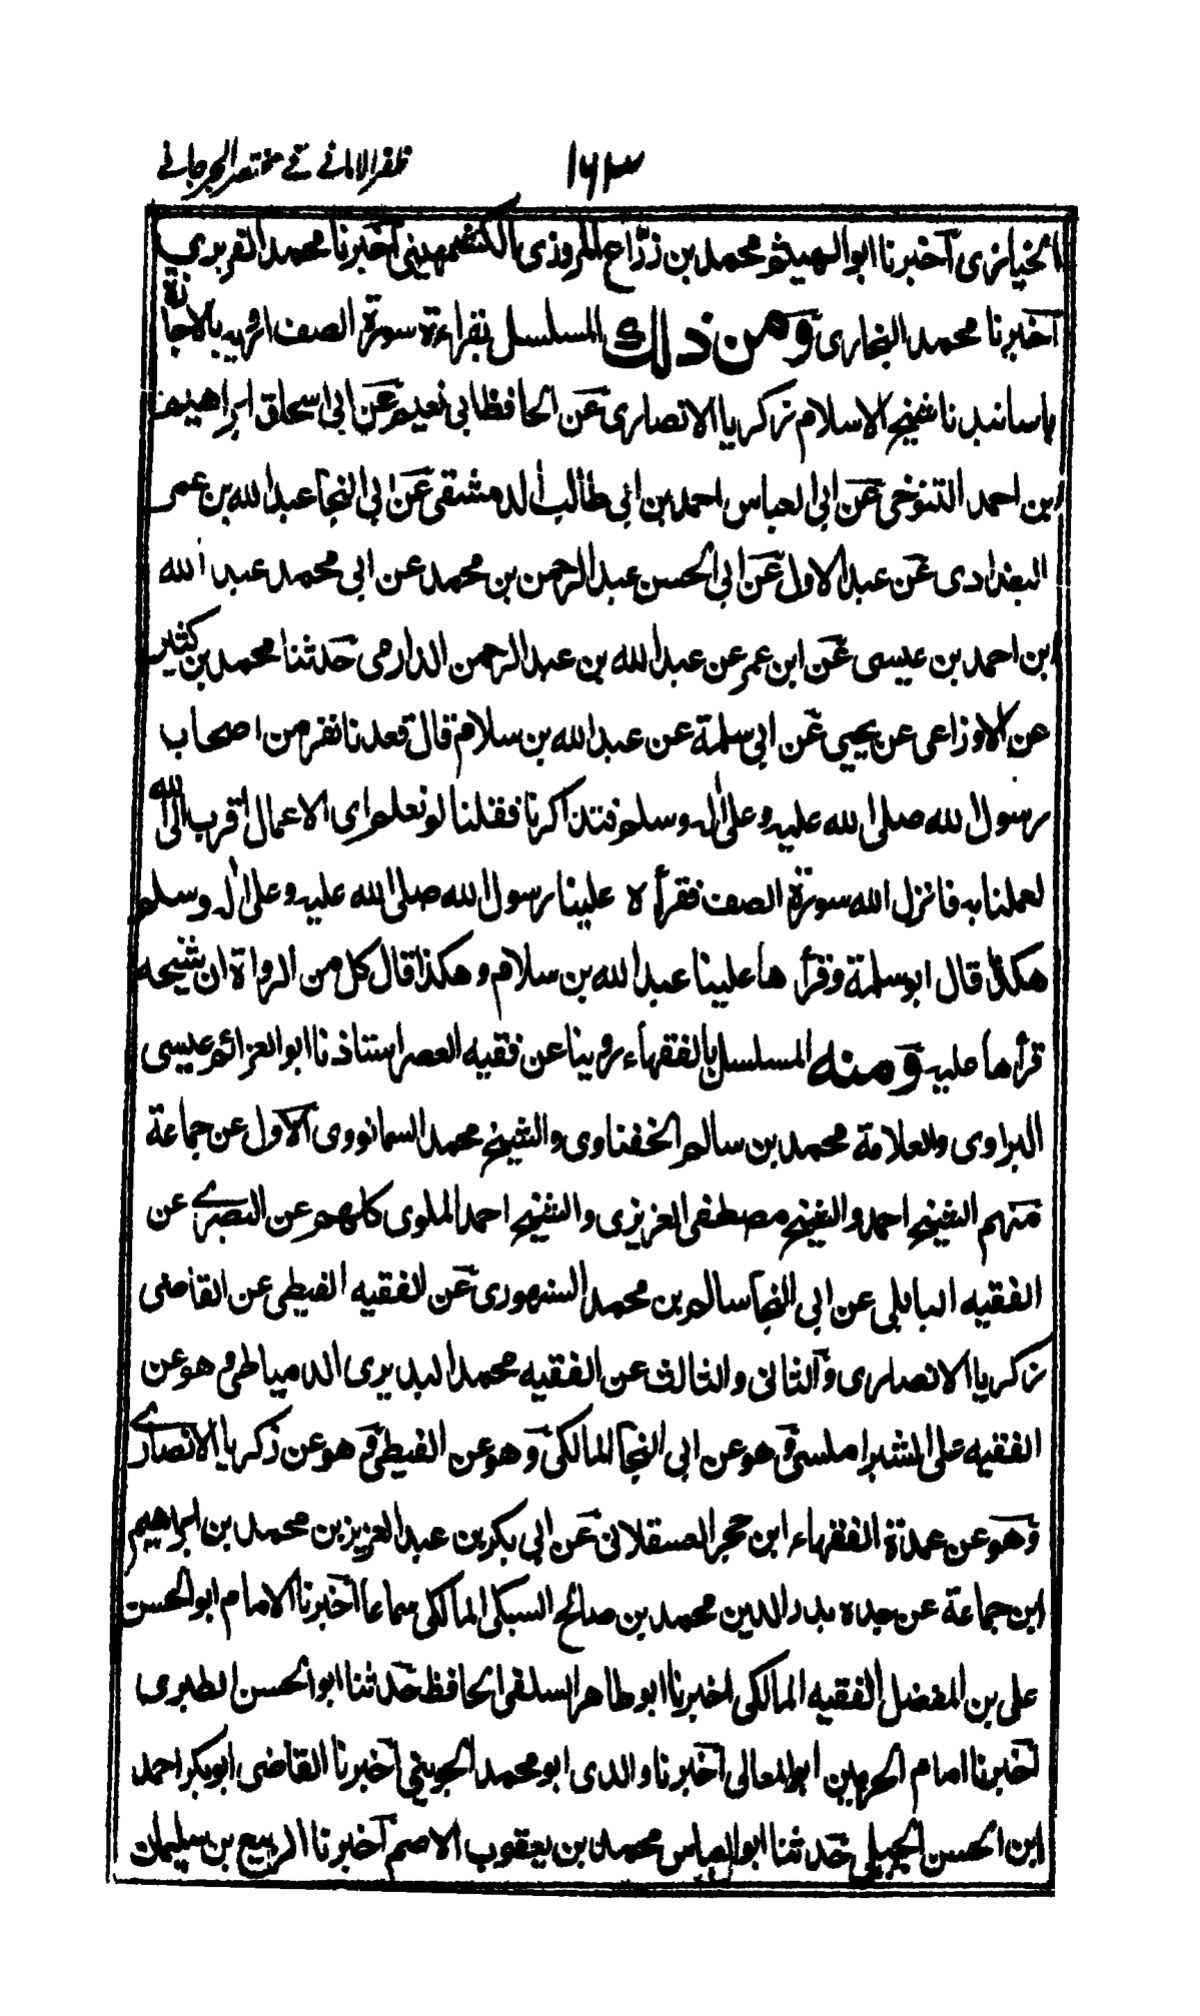 ۱۶۳ ظفر الامانے فے مختصر الجرجانے
الخیازی اخبرنا ابو الهیثم محمد بن زراع المروزی الکشمهینی اخبرنا محمد الفربری
اخبرنا محمد البخاری ومن ذلك المسلسل بقراءة سورة الصف ارویه بالاجازة
باسانید نا شیخ الاسلام زکریا الانصاری عن الحافظ ابی نعیم عن ابی اسحاق ابراهیم
ابن احمد التنوخی عن ابی العباس احمد بن ابی طالب الدمشقی عن ابی النجا عبد الله بن عمر
البغدادی عن عبد الاول عن ابی الحسن عبد الرحمن بن محمد عن ابی محمد عبد الله
ابن احمد بن عیسی عن ابن عمر عن عبد الله بن عبد الرحمن الدارمی حدثنا محمد بن کثیر
عن الاوزاعی عن یحیی عن ابی سلمة عن عبد الله بن سلام قال قعدنا نفر من اصحاب
رسول الله صلی الله علیه وعلی اله وسلم فتذاکرنا فقلنا لو نعلم ای الاعمال اقرب الی الله
لعملنا به فانزل الله سورة الصف فقرأ ه علینا رسول الله صلی الله علیه وعلی اله وسلم
هکذا قال ابو سلمة وقرأ ها علینا عبد الله بن سلام وهکذا قال کل من الرواة ان شیخه
قرأها علیه ومنه المسلسل بالفقهاء روینا عن فقیه العصر استاذنا ابو العزائم عیسی
البراوی والعلامة محمد بن سالم الخفناوی والشیخ محمد السمانودی الاول عن جماعة
منهم الشیخ احمد والشیخ مصطفی العزیزی والشیخ احمد الملوی کلهم عن البصرے عن
الفقیه البابلی عن ابی النجا سالم بن محمد السنهوری عن الفقیه الغیطی عن القاضی
زکریا الانصاری والثانی والثالث عن الفقیه محمد البدیری الدمیاطی وهو عن
الفقیه علی الشبراملسی وهو عن ابی النجا المالکی وهو عن الغیطی وهو عن زکریا الانصارے
وهو عن عمدة الفقهاء ابن حجر العسقلانی عن ابی بکر بن عبد العزیز بن محمد بن ابراهیم
ابن جماعة عن جده بدر الدین محمد بن صالح السبکی المالکی سماعا اخبرنا الامام ابو الحسن
علی بن المفضل الفقیه المالکی اخبرنا ابو طاهر السلفی الحافظ حدثنا ابو الحسن الطبری
اخبرنا امام الحرمین ابو المعالی اخبرنا والدی ابو محمد الجوینی اخبرنا القاضی ابو بکر احمد
ابن الحسن الجبلی حدثنا ابو العباس محمد بن یعقوب الاصم اخبرنا الربیع بن سلیمان